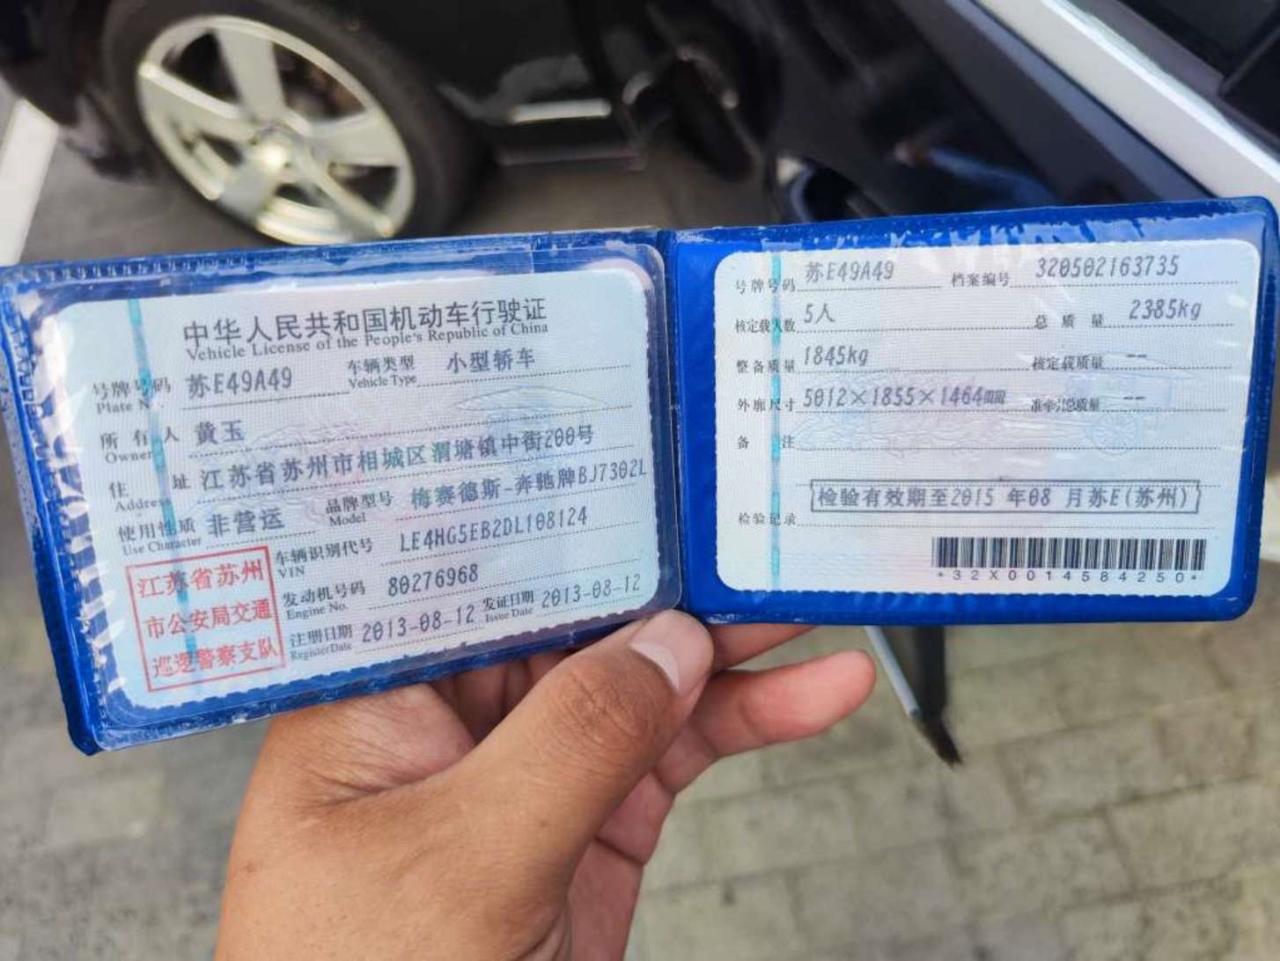 中华人民共和国机动车行驶证
Vehicle License of the People's Republic of China
号牌号码 苏E49A49 车辆类型 小型轿车
Plate N Vehicle Type
所有人 黄玉
Owner
住址 江苏省苏州市相城区渭塘镇中街200号
Address
使用性质 非营运 品牌型号 梅赛德斯-奔驰牌BJ7302L
Use Character Model
江苏省苏州
市公安局交通
巡逻警察支队
车辆识别代号 LE4HG5EB2DL108124
VIN
发动机号码 80276968
Engine No.
注册日期 2013-08-12 发证日期 2013-08-12
Register Date Issue Date
号牌号码 苏E49A49 档案编号 320502163735
核定载人数 5人 总质量 2385kg
整备质量 1845kg 核定载质量 --
外廓尺寸 5012×1855×1464mm 准牵引总质量 --
备注
检验有效期至2015 年08 月苏E(苏州)
检验记录
*32X0014584250*